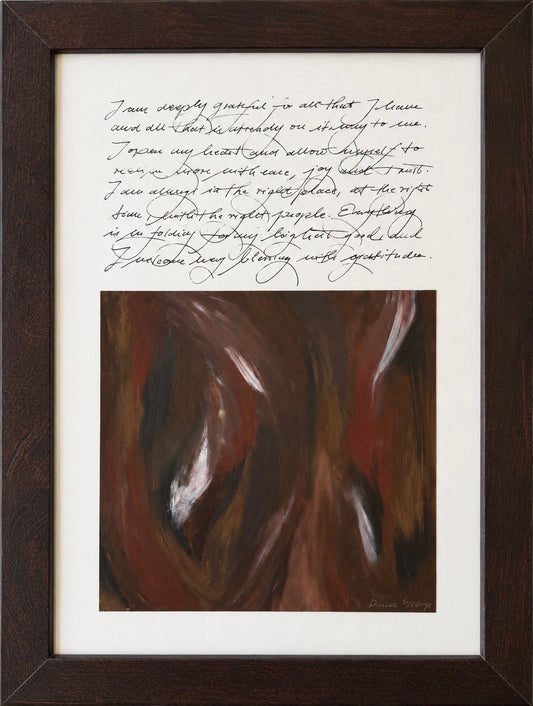 I am deeply grateful for all that I have
and all that is already on its way to me.
I open my heart and allow myself to
receive more with ease, joy and trust.
I am always in the right place, at the right
time with the right people. Everything
is unfolding for my highest good and
I welcome every blessing with gratitude.
George